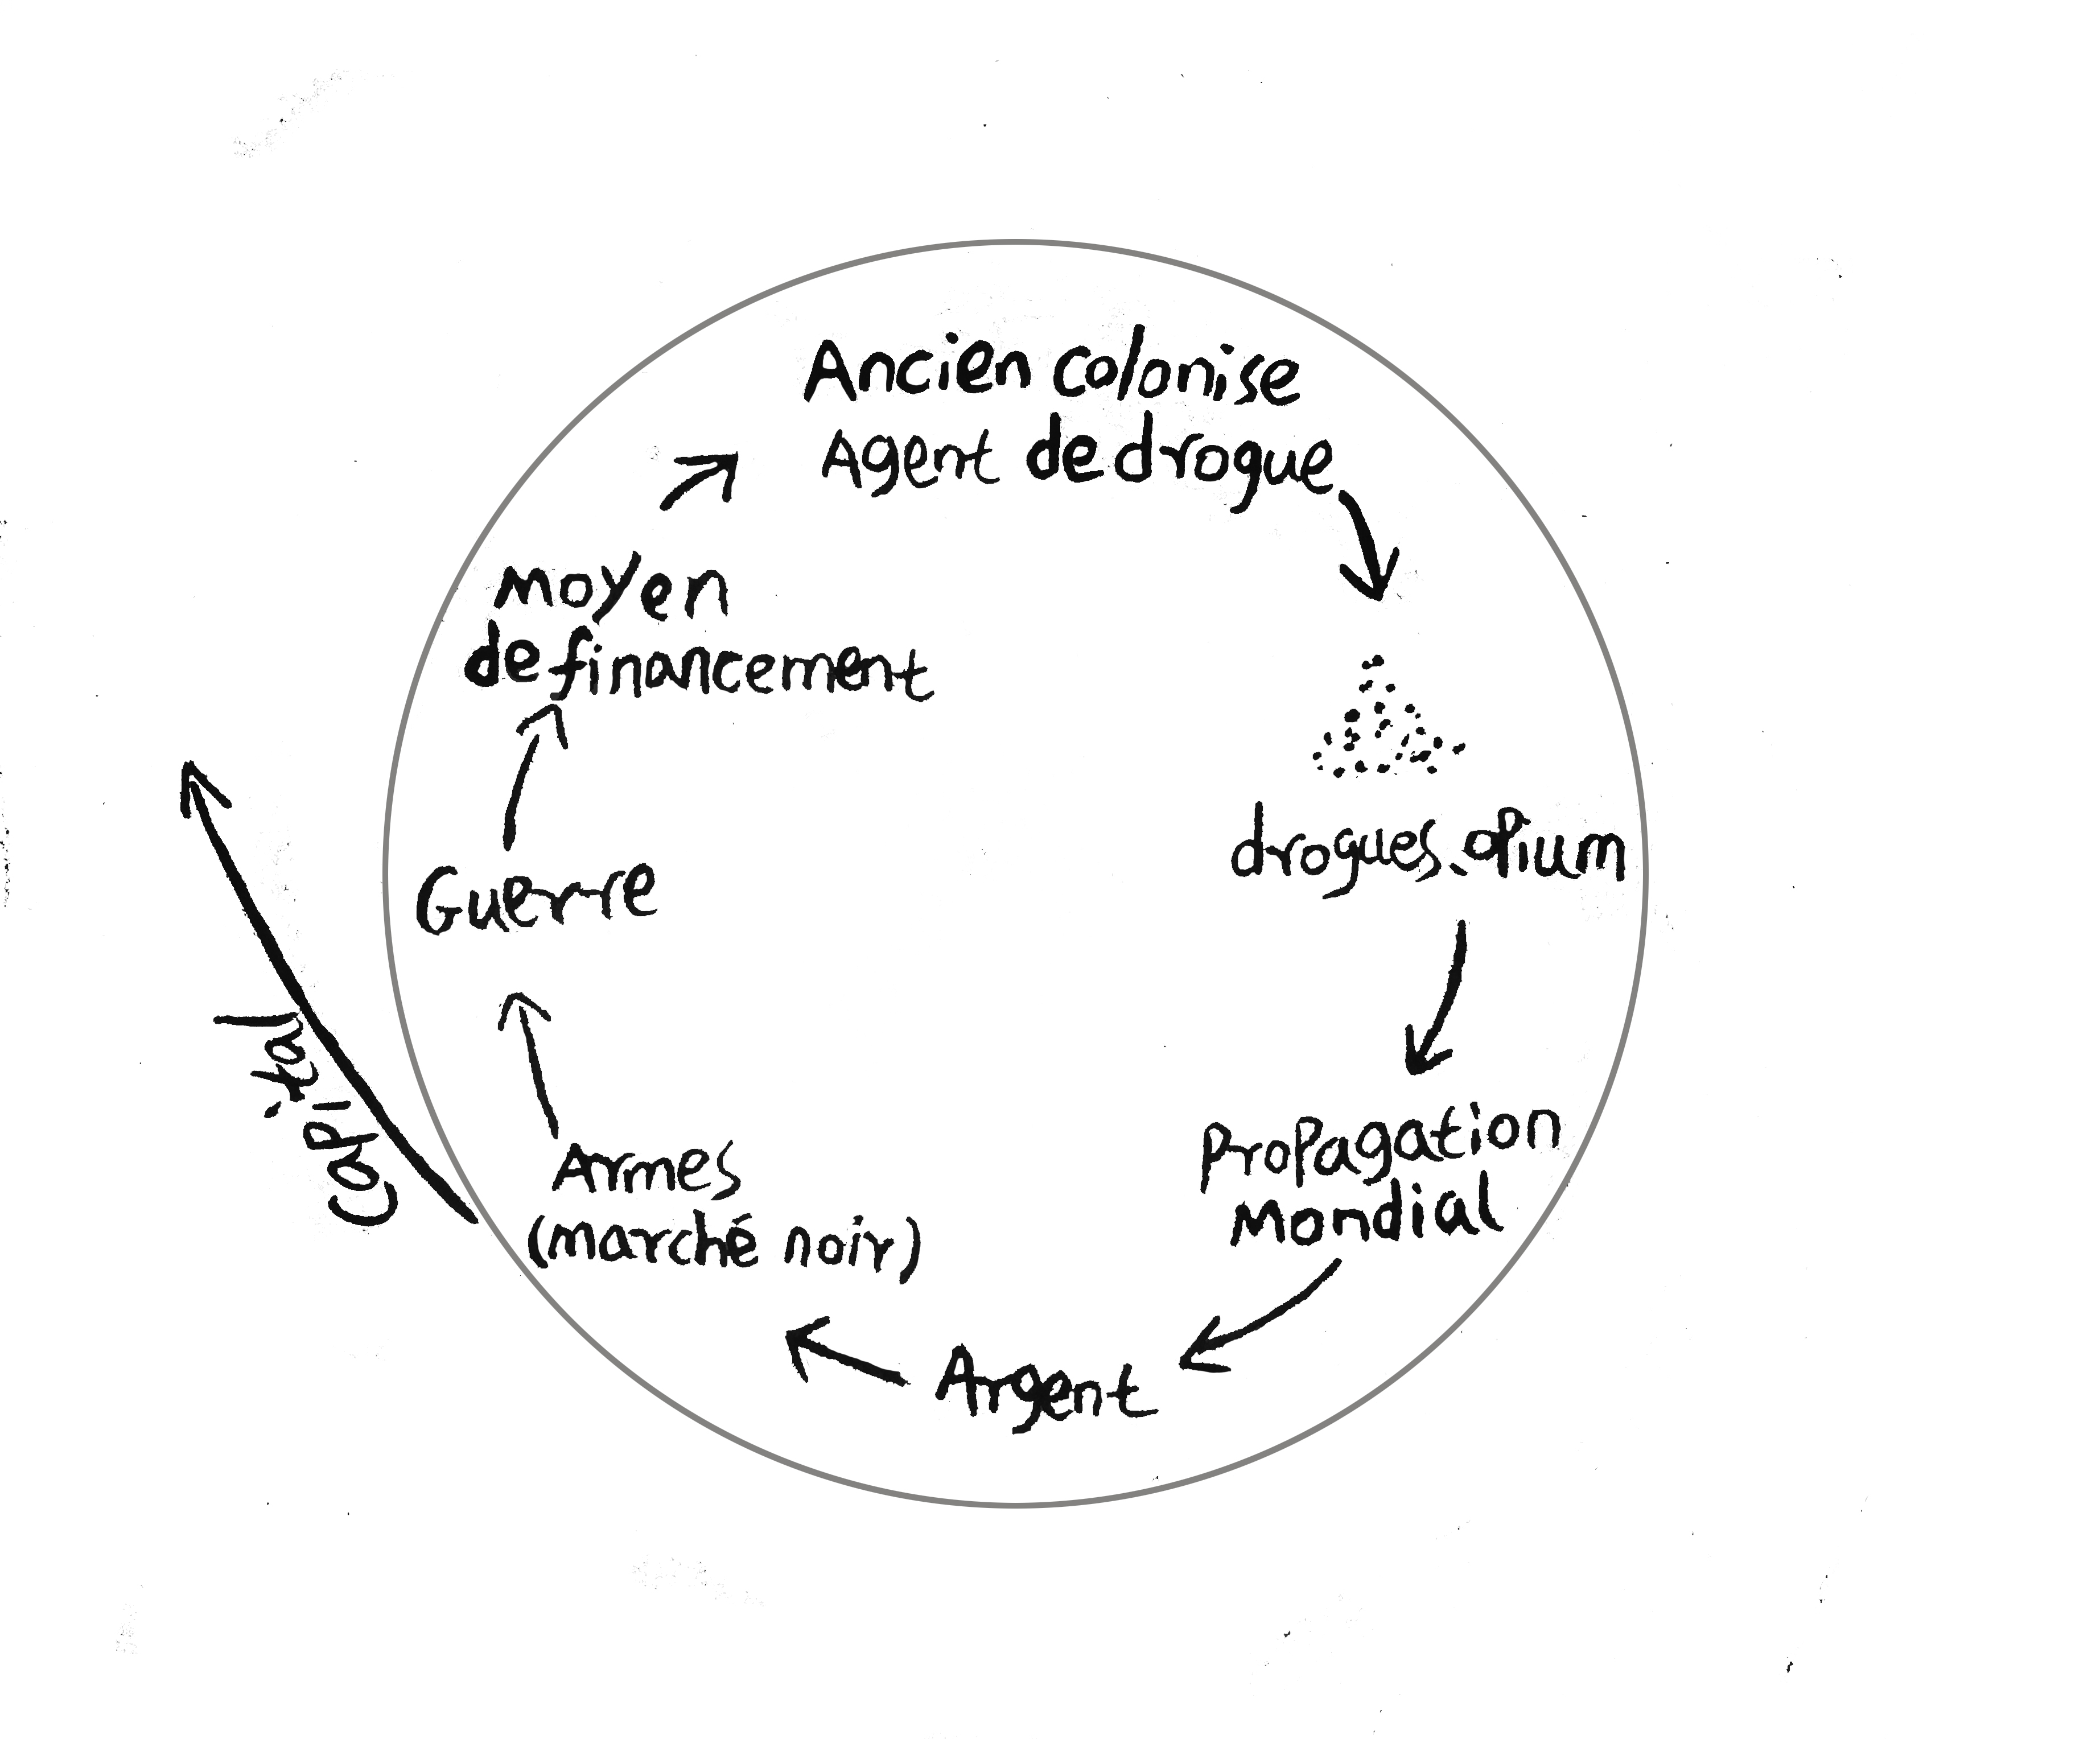 Ancien colonise
Agent de drogue
drogues, opium
Propagation
Mondial
Argent
Armes
(marché noir)
Guerre
moyen
de financement
Capital